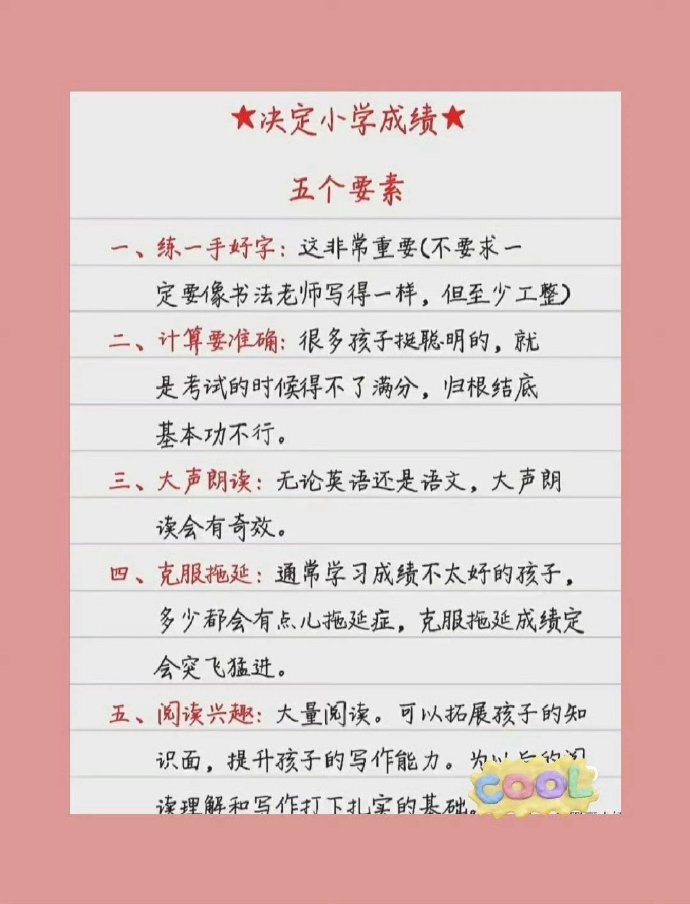 ★决定小学成绩★
五个要素
一、练一手好字：这非常重要(不要求一
定要像书法老师写得一样，但至少工整)
二、计算要准确：很多孩子挺聪明的，就
是考试的时候得不了满分，归根结底
基本功不行。
三、大声朗读：无论英语还是语文，大声朗
读会有奇效。
四、克服拖延：通常学习成绩不太好的孩子，
多少都会有点儿拖延症，克服拖延成绩定
会突飞猛进。
五、阅读兴趣：大量阅读。可以拓展孩子的知
识面，提升孩子的写作能力。为以后的阅
读理解和写作打下扎实的基础。
COOL